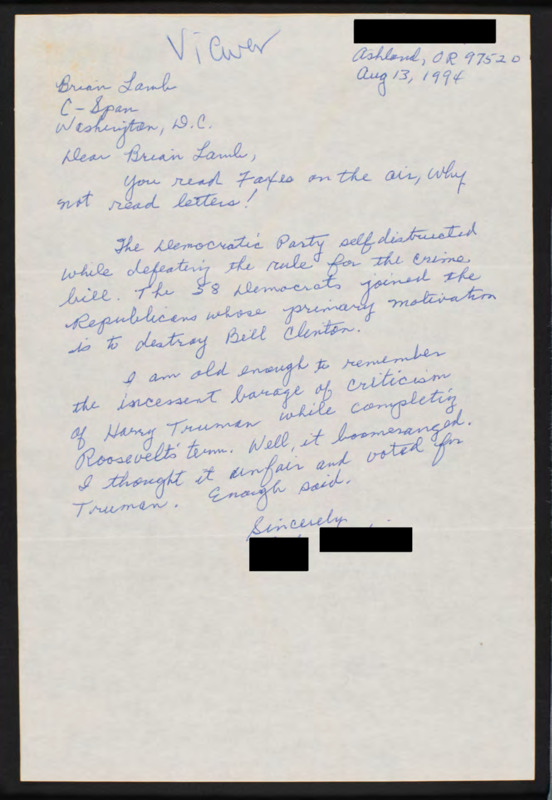 Viewer
Ashland, OR 97520
Aug 13, 1994
Brian Lamb
C-Span
Washington, D.C.
Dear Brian Lamb,
You read Faxes on the air, Why
not read letters!
The Democratic Party selfdistructed
while defeating the rule for the crime
bill. The 58 Democrats joined the
Republicans whose primary motivation
is to destroy Bill Clinton.
I am old enough to remember
the incessent barage of criticism
of Harry Truman while completig
Roosevelt's term. Well, it boomeranged.
I thought it unfair and voted for
Truman. Enough said.
Sincerely